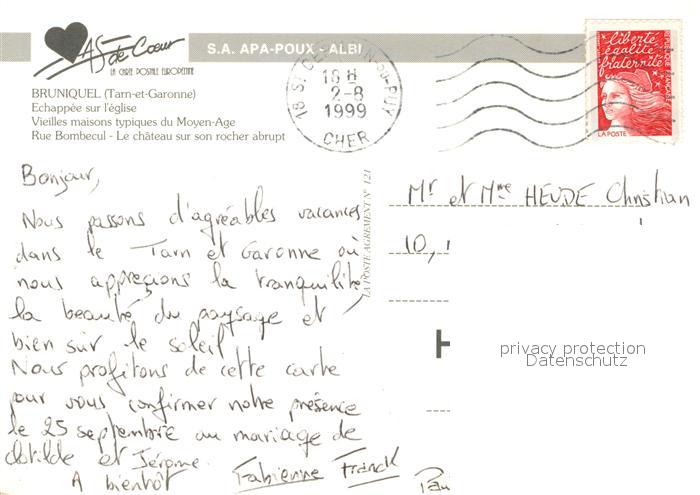 AS de Cœur
LA CARTE POSTALE EUROPÉENNE
S.A. APA-POUX - ALBI
BRUNIQUEL (Tarn-et-Garonne)
Echappée sur l'église
Vieilles maisons typiques du Moyen-Age
Rue Bombecul - Le château sur son rocher abrupt
18 H
2-8
1999
CHER
liberté
égalité
fraternité
RÉPUBLIQUE FRANÇAISE
LA POSTE
Bonjour,
Nous passons d'agréables vacances
dans le Tarn et Garonne où
nous apprecions la tranquilité
la beauté du paysage et
bien sûr le soleil
Nous profitons de cette carte
pour vous confirmer notre présence
le 25 septembre au mariage de
clotilde et Jérome.
A bientôt Fabienne Franck
LA POSTE AGREMENT N° 121
Mr et Mme HEUDE Christian
10,
H
privacy protection
Datenschutz